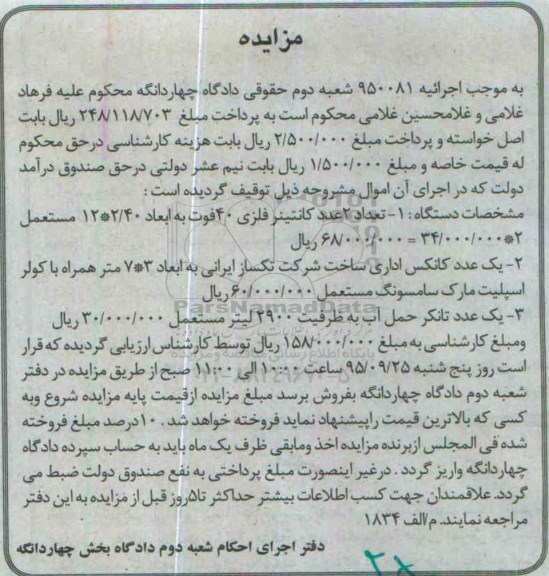 مزایده
به موجب اجرائیه ۹۵۰۰۸۱ شعبه دوم حقوقی دادگاه چهاردانگه محکوم علیه فرهاد
غلامی و غلامحسین غلامی محکوم است به پرداخت مبلغ ۲۴۸/۱۱۸/۷۰۳ ریال بابت
اصل خواسته و پرداخت مبلغ ۲/۵۰۰/۰۰۰ ریال بابت هزینه کارشناسی درحق محکوم
له قیمت خاصه و مبلغ ۱/۵۰۰/۰۰۰ ریال بابت نیم عشر دولتی درحق صندوق درآمد
دولت که در اجرای آن اموال مشروحه ذیل توقیف گردیده است :
مشخصات دستگاه : ۱- تعداد ۲عدد کانتینر فلزی ۴۰فوت به ابعاد ۲/۴۰*۱۲ مستعمل
۲*۳۴/۰۰۰/۰۰۰ = ۶۸/۰۰۰/۰۰۰ ریال
۲- یک عدد کانکس اداری ساخت شرکت تکساز ایرانی به ابعاد ۳*۷ متر همراه با کولر
اسپلیت مارک سامسونگ مستعمل ۶۰/۰۰۰/۰۰۰ ریال
ParsNamadData
۳- یک عدد تانکر حمل آب به ظرفیت ۲۹۰۰ لیتر مستعمل ۳۰/۰۰۰/۰۰۰ ریال
ومبلغ کارشناسی به مبلغ ۱۵۸/۰۰۰/۰۰۰ ریال توسط کارشناس ارزیابی گردیده که قرار
است روز پنج شنبه ۹۵/۰۹/۲۵ ساعت ۱۰:۰۰ الی ۱۱:۰۰ صبح از طریق مزایده در دفتر
شعبه دوم دادگاه چهاردانگه بفروش برسد مبلغ مزایده ازقیمت پایه مزایده شروع وبه
کسی که بالاترین قیمت راپیشنهاد نماید فروخته خواهد شد . ۱۰درصد مبلغ فروخته
شده فی المجلس ازبرنده مزایده اخذ ومابقی ظرف یک ماه باید به حساب سپرده دادگاه
چهاردانگه واریز گردد . درغیر اینصورت مبلغ پرداختی به نفع صندوق دولت ضبط می
گردد. علاقمندان جهت کسب اطلاعات بیشتر حداکثر تا۵روز قبل از مزایده به این دفتر
مراجعه نمایند. م/الف ۱۸۳۴
دفتر اجرای احکام شعبه دوم دادگاه بخش چهاردانگه